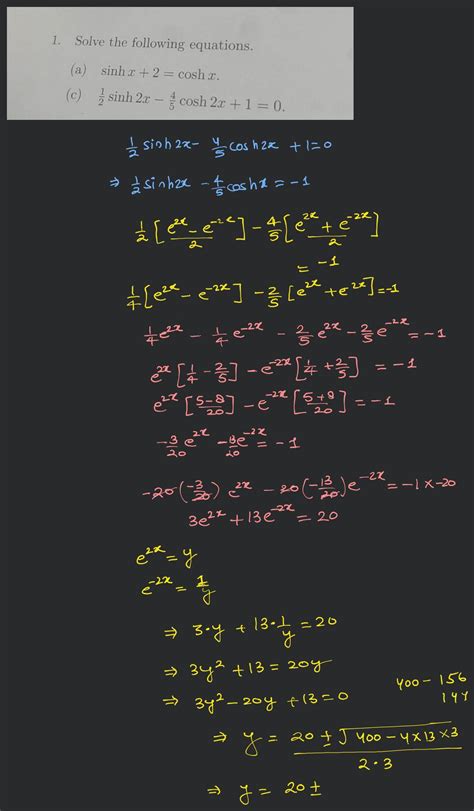 1. Solve the following equations.
(a) sinh x + 2 = cosh x.
(c) ½ sinh 2x − ⅘ cosh 2x + 1 = 0.
½ sinh2x − ⅘ cosh2x + 1 = 0
⇒ ½ sinh2x − ⅘ cosh x = −1
½ [ (e^{2x} − e^{−2x})/2 ] − ⅘ [ (e^{2x} + e^{−2x})/2 ]
= −1
¼ [e^{2x} − e^{−2x}] − ⅖ [e^{2x} + e^{2x}] = −1
¼ e^{2x} − ¼ e^{−2x} − ⅖ e^{2x} − ⅖ e^{−2x} = −1
e^{2x} [¼ − ⅖] − e^{−2x} [¼ + ⅖] = −1
e^{2x} [(5−8)/20] − e^{−2x} [(5+8)/20] = −1
−3/20 e^{2x} − 13/20 e^{−2x} = −1
−20 (−3/20) e^{2x} − 20 (−13/20) e^{−2x} = −1 × −20
3e^{2x} + 13e^{−2x} = 20
e^{2x} = y
e^{−2x} = 1/y
⇒ 3·y + 13·1/y = 20
⇒ 3y² + 13 = 20y
⇒ 3y² − 20y + 13 = 0
400 − 156
144
⇒ y = (20 ± √(400 − 4×13×3))/(2·3)
⇒ y = 20 ±